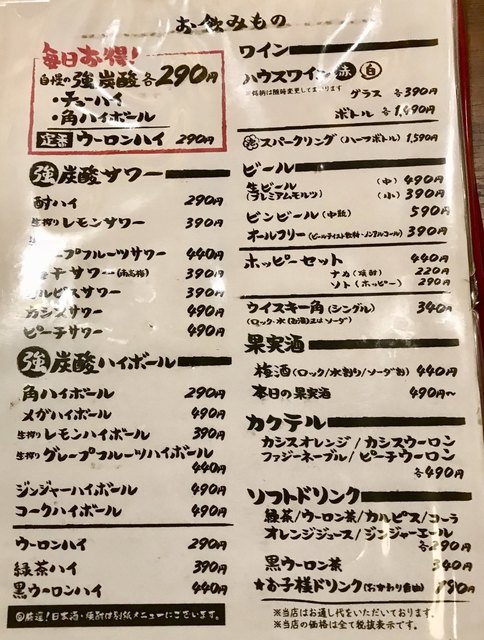 お飲みもの
毎日お得!
自慢の強炭酸各290円
・チューハイ
・角ハイボール
定番 ウーロンハイ 290円
強炭酸サワー
酎ハイ 290円
生搾りレモンサワー 390円
生搾り
ープフルーツサワー 440円
子サワー(南高梅) 390円
ルピスサワー 390円
カシスサワー 490円
ピーチサワー 490円
強炭酸ハイボール
角ハイボール 290円
メガハイボール 490円
生搾りレモンハイボール 390円
生搾りグレープフルーツハイボール
440円
ジンジャーハイボール 490円
コークハイボール 490円
ウーロンハイ 290円
緑茶ハイ 390円
黒ウーロンハイ 440円
厳選!日本酒・焼酎は別紙メニューにございます。
ワイン
ハウスワイン 赤 白
※銘柄は随時変更してまいります
グラス 各390円
ボトル 各1,490円
泡 スパークリング(ハーフボトル) 1,590円
ビール
生ビール (中) 490円
(プレミアムモルツ) (小) 390円
ビンビール(中瓶) 590円
オールフリー(ビールテイスト飲料・ノンアルコール) 390円
ホッピーセット 440円
ナカ(焼酎) 220円
ソト(ホッピー) 290円
ウイスキー角(シングル) 340円
(ロック・水(お湯)又はソーダ)
果実酒
梅酒(ロック/水割り/ソーダ割) 440円
本日の果実酒 490円~
カクテル
カシスオレンジ/カシスウーロン
ファジーネーブル/ピーチウーロン
各490円
ソフトドリンク
緑茶/ウーロン茶/カルピス/コーラ
オレンジジュース/ジンジャーエール
各290円
黒ウーロン茶 340円
★お子様ドリンク(おかわり自由) 190円
※当店はお通し代をいただいております。
※当店の価格は全て税抜表示です。